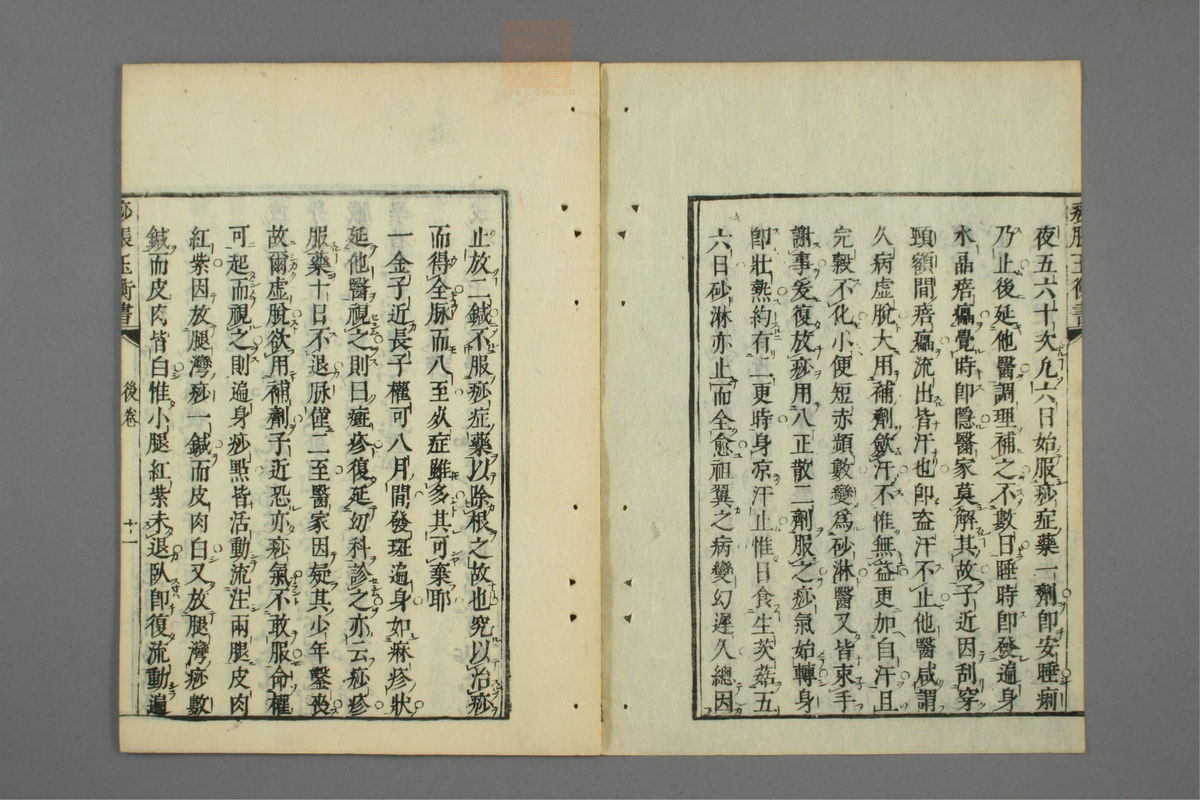 痧脹玉衡書
夜五六十次凡六日始服痧症藥一劑卽安睡痢
乃止後延他醫調理補之不數日睡時卽發遍身
水晶㾦㿔覺時卽隱醫家莫解其故子近因刮穿
頸額間㾦㿔流出皆汗也卽盗汗不止他醫咸謂
久病虛脫大用補劑歛汗不惟無益更加自汗且
完穀不化小便短赤頻數變爲砂淋醫又皆束手
謝事爰復放痧用八正散二劑服之痧氣始轉身
卽壯熱約有二更時身凉汗止惟日食生茨菇五
六日砂淋亦止而全愈祖翼之病變幻遲久總因
止放二鍼不服痧症藥以除根之故也究以治痧
而得全脉而八至必症雖多其可棄耶
一金子近長子權可八月間發斑遍身如麻疹狀
延他醫視之則曰斑疹復延幼科診之亦云痧疹
服藥十日不退脉僅二至醫家因疑其少年鑿喪
故爾虛脫欲用補劑子近恐亦痧氣不敢服命權
可起而視之則遍身痧點皆活動流注兩腿皮肉
紅紫因放腿灣痧一鍼而皮肉白又放腿灣痧數
鍼而皮肉皆白惟小腿紅紫未退臥卽復流動遍
痧脹玉衡書
後卷
十一